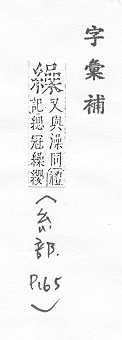 字彙補
繰
又與澡同禮
記緦冠繰纓
(糸部. P.165)